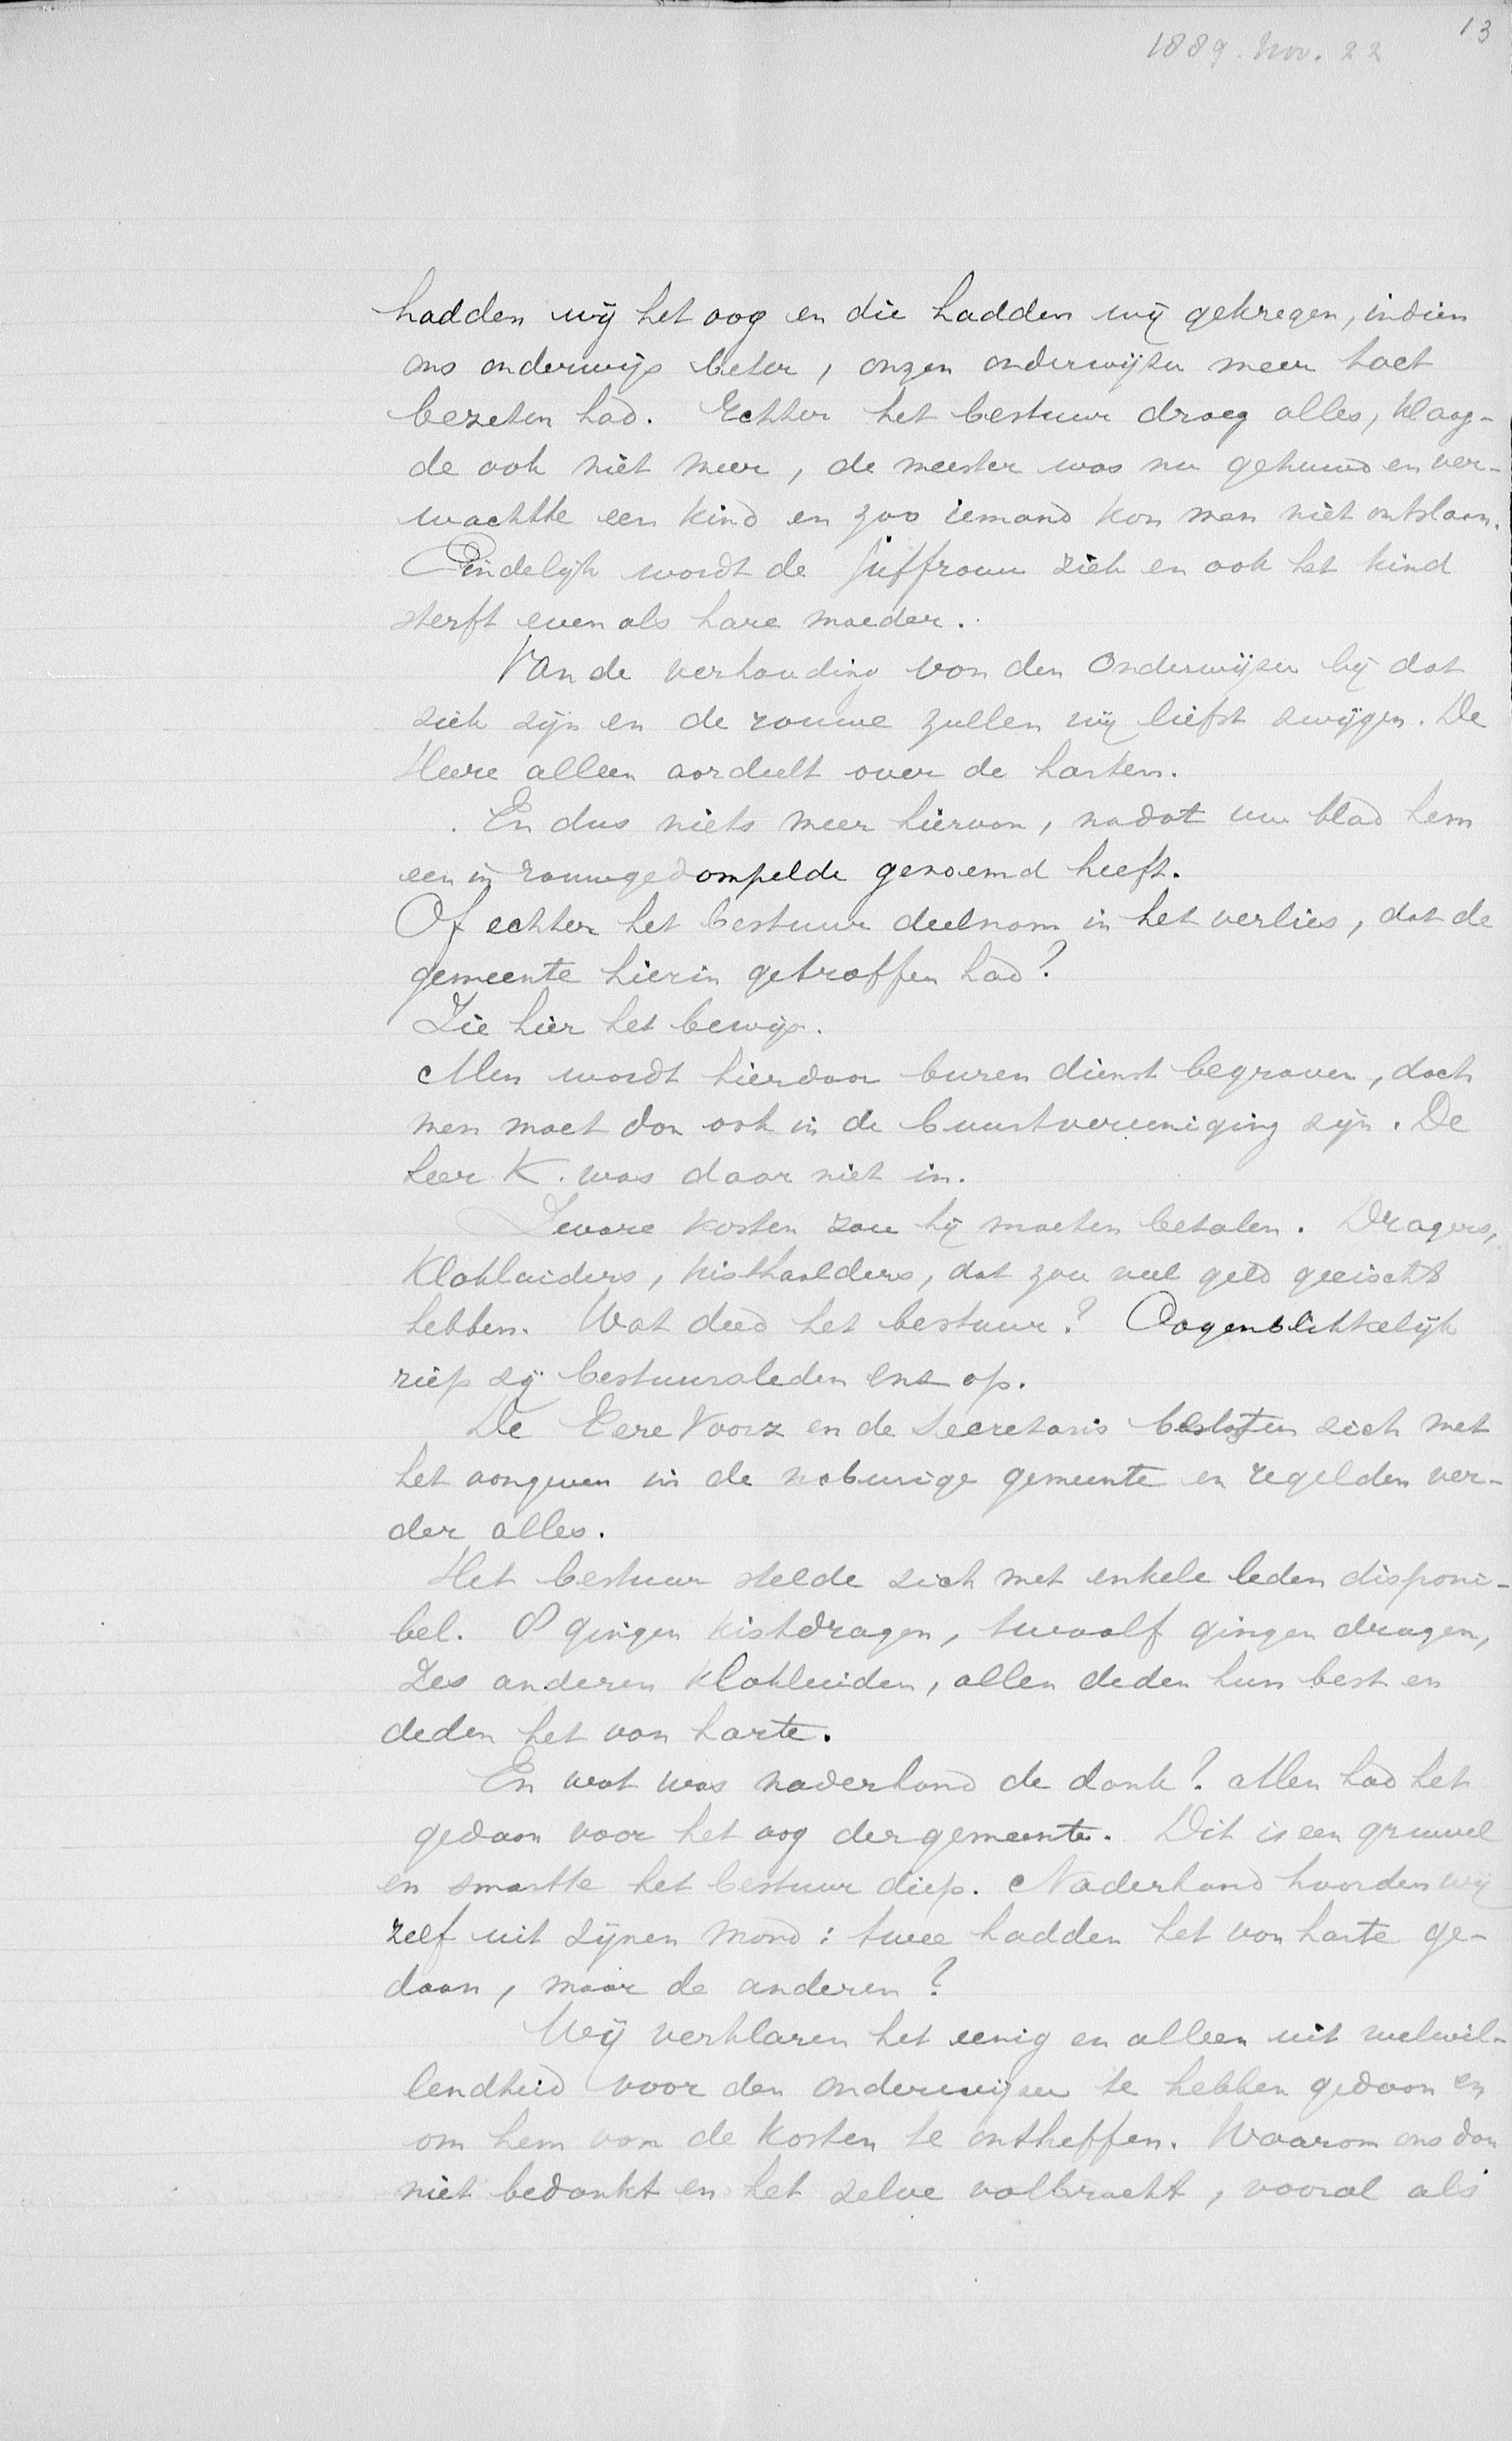 13
1889. Nov. 22
hadden wij het oog en die hadden wij gekregen, indien
ons onderwijs beter, onzen onderwijzer meer tact
bezeten had. Echter het bestuur droeg alles, klaag-
de ook niet meer, de meester was nu gehuwd en ver-
wachtte een kind en zoo iemand kon men niet ontslaan.
Eindelijk wordt de Juffrouw ziek en ook het kind
sterft even als hare moeder.
Van de verhouding van den Onderwijzer bij dat
ziek zijn en de rouwe zullen wij liefst zwijgen. De
Heere alleen oordeelt over de harten.
En dus niets meer hiervan, nadat uw blad hem
een in rouwgedompelde genoemd heeft.
Of echter het bestuur deelnam in het verlies, dat de
gemeente hierin getroffen had?
Zie hier het bewijs.
Men wordt hierdoor buren dienst begraven, doch
men moet dan ook in de buurtvereeniging zijn. De
heer K. was daar niet in.
Zware kosten zou hij moeten betalen. Dragers,
Klokluiders, kisthaalders, dat zou veel geld geeischt
hebben. Wat deed het bestuur? Oogenblikkelijk
riep zij bestuursleden enz op.
De Eere Voorz en de Secretaris belastten zich met
het aangeven in de naburige gemeente en regelden ver-
der alles.
Het bestuur stelde zich met enkele leden disponi-
bel. 8 gingen kistdragen, twaalf gingen dragen,
Zes anderen klokluiden, allen deden hun best en
deden het van harte.
En wat was naderhand de dank? Men had het
gedaan voor het oog der gemeente. Dit is een gruwel
en smartte het bestuur diep. Naderhand hoorden wij
zelf uit zijnen mond: twee hadden het van harte ge-
daan, maar de anderen?
Wij verklaren het eenig en alleen uit welwil-
lendheid voor den onderwijzer te hebben gedaan en
om hem van de kosten te ontheffen. Waarom ons dan
niet bedankt en het zelve volbracht, vooral als